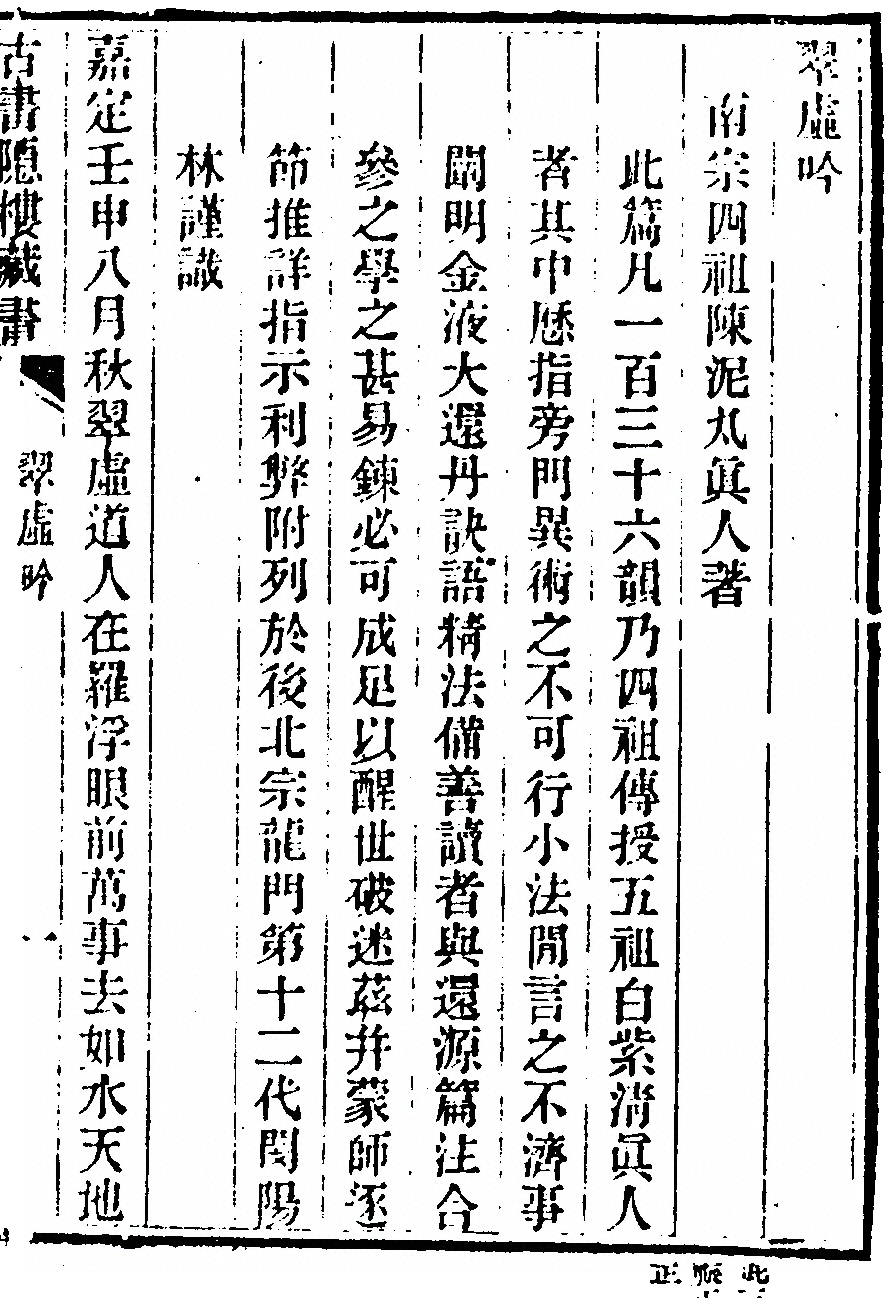 翠虛吟
南宗四祖陳泥丸眞人著
此篇凡一百三十六韻乃四祖傳授五祖白紫淸眞人
者其中歷指旁門異術之不可行小法閒言之不濟事
闡明金液大還丹訣語精法備善讀者與還源篇注合
參之學之甚易鍊必可成足以醒世破迷茲幷蒙師逐
節推詳指示利弊附列於後北宗龍門第十二代閔陽
林謹識
嘉定壬申八月秋翠虛道人在羅浮眼前萬事去如水天地
古書隱樓藏書
翠虛吟